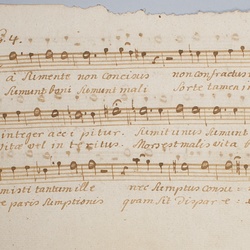 4.
a Sumente non concisus non confractus
Sumunt boni Sumunt mali Sorte tamen in
integer accipitur. Sumit unus Sumunt
vitæ vel interitus. Mors est malis vita b
misti tantum ille nec Sumptus consu
paris Sumptionis quam sit dispar e